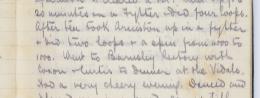 20 minutes in a fighter & did four loops.
After tea took Armstron up in a fighter
& did two loops & a spin from 6000 to
1000. Went to Barnsley Rectory with
Coxon & Curtis to dinner at the Vidals.
Had a very cheery evening. Danced and